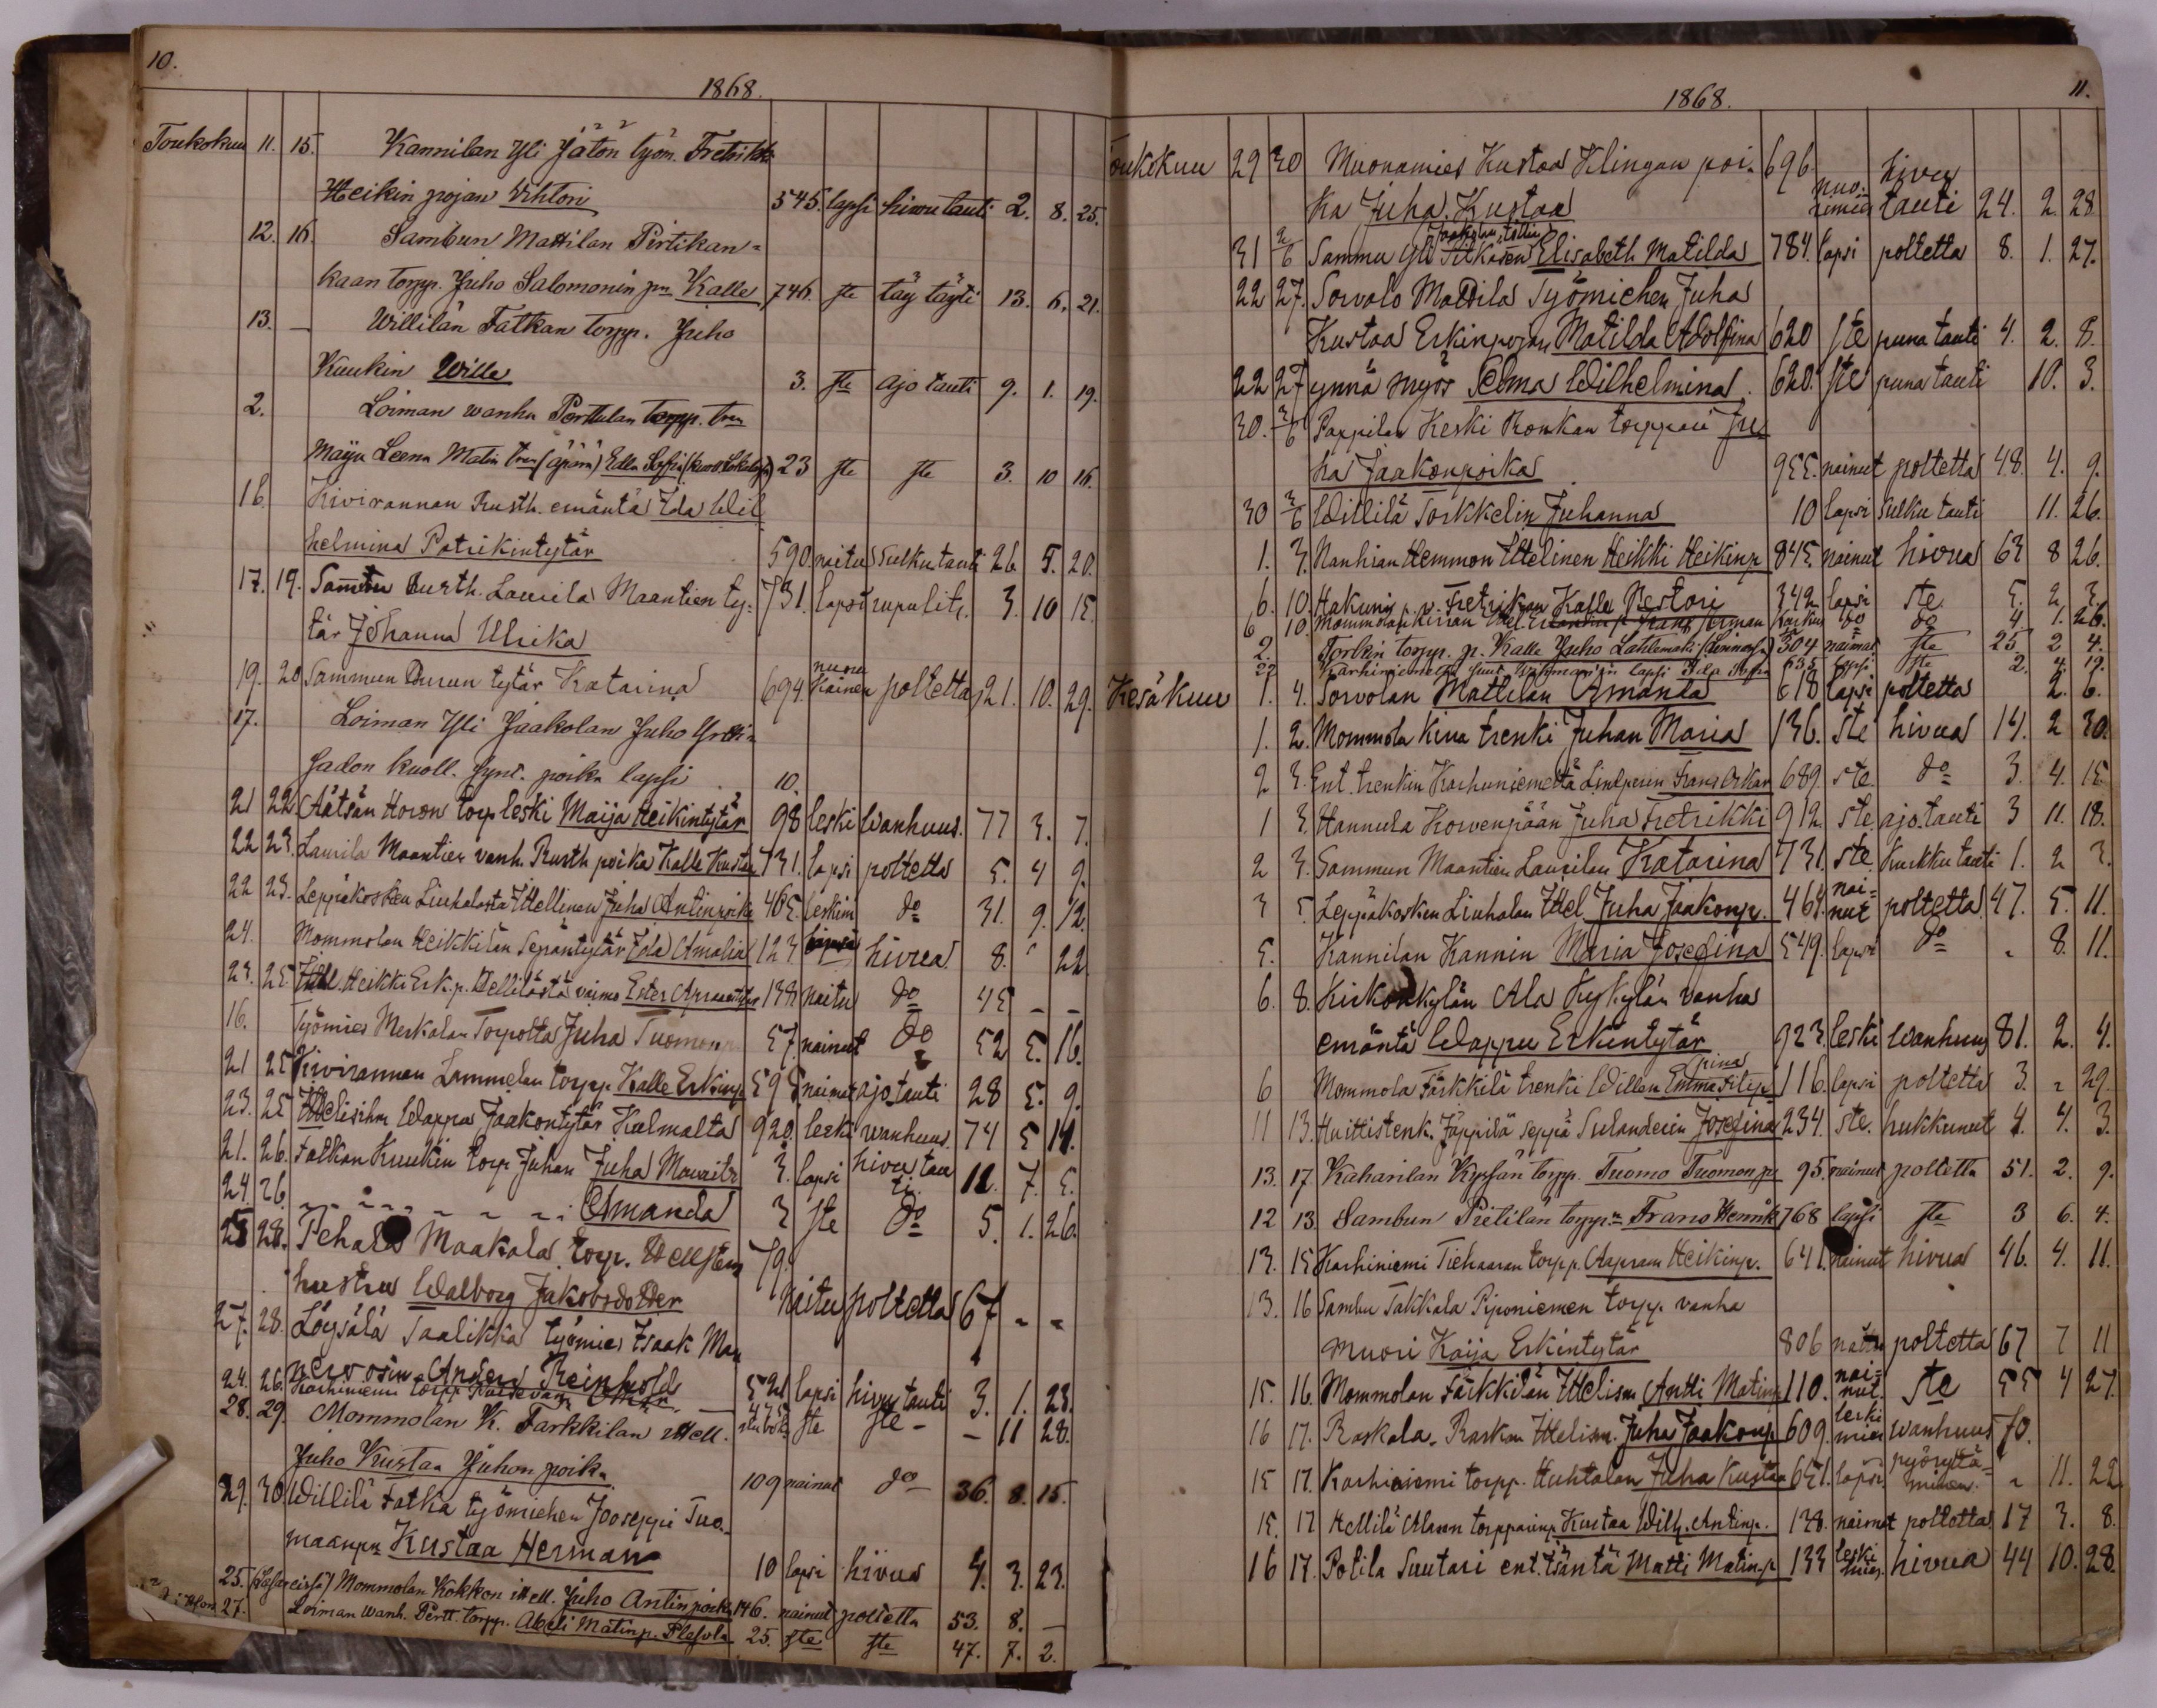 10.
1868.
Toukokuu 11. 15. Kannilan Yli Jätön työm. Fretrikk
Heikin pojan Vihtori 545. lapsi hivutauti 2. 8. 25.
12. 16. Sambun Mattilan Pirtikan=
kaan torpp. Juho Salomonin pn Kalle 746. ste täy täyti 13. 6. 21.
13. — Willilän Fatkan torpp. Juho
Kuukin Wille 3. ste ajo tauti 9. 1. 19.
2. Loiman wanha Perttulan torpp. trn
Maija Leena Matin trn (äpärä) Edla Sofia 23 ste ste 3. 10 16.
16. Kivirannan Rusth. emäntä Ida Wil
helmina Patrikintytär 590. naitu sulkutauti 26 5. 20.
17. 19. Sammu Rusth. Laurila Maantien ty= 731. lapsi rupulit. 3. 10 15.
tär Johanna Ulrika
19. 20 Sammun tytär Katarina 694. nuori nainen poltetta 21. 10. 29.
17. Loiman Yli Jaakolan Juho
kuoll. synt. poika lapsi 10.
21 22 Äätsän Horon torp leski Maija Heikintytär 98 leski Wanhuus. 77 3. 7.
22 23. Laurila Maantien vanh. Rusth poika Kalle Kustaa 731. lapsi poltetta 5. 4 9.
22 23. Leppäkosken Liuhalasta Ittellinen Juha Antinpoika 465. leskim do 31. 9. 12.
24. Mommolan Heikkilän Sepäntytär Ida Amalia 123 lapsi hivua 8. " 22
23. 25. Ittell. Heikki Erk.p. Hellilästä vaimo Ester 138 naitu do 45 — —
16. Työmies Merkolan Torpolta Juha Tuomonp 57. nainut do 52 5. 16.
21 25 Kivirannan Lammelan torpp. Kalle Erkinp 595 nainut ajotauti 28 5. 9.
23. 25 Ittelisihn Wappu Jaakontytär Kulmalta 920. leski wanhuus. 74 5 14.
21. 26. Fatkan Kuukin torp Juhan Juha Mauritz 3. lapsi hivu tau 12. 7. 5.
ti
24. 26. „ „ „ „ „ „ Amanda 3 ste do 5. 1. 26.
25 28. Pehula Maakala torp. Hellsten 79.
hustru Walborg Jakobsdotter naitu poltetta 67 - -
27. 28. Löysälä Saalikka työmies Isaak Man
nervosin Anders Reinhold 521 lapsi hivutauti 3. 1. 23.
24. 26. Karhiniemi torpp.
28. 29. Mommolan K. Farkkilan ittell. ste ste - — 11 28.
Juho Kustaa Juhon poika 109 nainut do 36. 8. 15.
29. 30 Willilä Fatka työmiehen Jooseppi Tuo-
maanpn Kustaa Herman 10 lapsi hivua 4. 3. 23.
25. Mommolan Kokkon ittell. Juho Antinpoika 146. nainut poltetta 53. 8. —
27. Loiman wanh. Pertt. torpp. Abeli Matinp. Plesola 25. ste ste 47. 7. 2.
11.
1868.
Toukokuu 29 30 Muonamies Kustaa Klingan poi- 696
ka Juha Kustaa nuo. rimies hivu tauti 24. 2. 28
31 2/6 Sammu Yli Elisabeth Matilda 784. lapsi poltetta 8. 1. 27.
22 27. Sorvola Mattila Työmiehen Juha
Kustaa Erkinpojan Matilda Adolfina 620 ste puna tauti 4. 2. 8.
22 27 ynnä myös Selma Wilhelmina 620. ste puna tauti 10. 3.
30. 3/6 Pappilan Keski Ronkan torppari Ju
ha Jaakonpoika 955. nainut poltetta 48. 4. 9.
30 3/6 Willilä Torkkelin Juhanna 10 lapsi sulku tauti 11. 26.
1. 3. Nanhian Hemmon Ittelinen Heikki Heikinp 845 nainut hivua 63 8 26.
6. 10. Hakunin p.v. Fretrikan Kalle Nestori 342 lapsi ste. 5. 2. 3.
6 10. Mommolan Kirran Ittel. Herman Karkus do do 4 1. 26.
2. Torkin torpp. p. Kalle Juho Lähteenmäki 304 nainut ste 25 2 4.
22 Karhiniemeltä lapsi Ida Sofia 635 lapsi ste 2. 4. 19.
Kesäkuu 1. 4. Sorvolan Mattilan Amanda 618 lapsi poltetta 2. 6.
1. 2. Mommola Kirra trenki Juhan Maria 136. ste hivua 14. 2 30.
2 3. Ent. trenkin Karhuniemeltä Lindperin Frans Oskar 689. ste. do 3. 4. 15
1 3. Hannula Korvenpään Juha Fretrikki 912. ste. ajo.tauti 3 11. 18.
2 3. Sammun Maantien Laurilan Katarina 731. ste. kurkku tauti 1. 2 3.
3 5. Leppäkosken Liuhalan Ittel Juha Jaakonp. 464. nai= nut poltetta 47. 5. 11.
5. Kannilan Kannin Maria Josefina 549. lapsi do „ 8. 11.
6. 8. Kirkonkylän Ala Kykylän vanha
emäntä Wappu Erkintytär 923. leski Wanhuus 81. 2. 4.
6 Mommola Farkkila trenki Willen Emma Filip pina 116. lapsi poltetta 3. „ 29.
11 13. Huittistenk. Jäppilä seppä Sulanderin Josefina 234. ste. hukkunut 4. 4. 3.
13. 17. Kaharilan Kyssän torpp. Tuomo Tuomon pn 95. nainut poltetta 51. 2. 9.
12 13. Sambun Pietilän torpp.n Frans Henrik 768 lapsi ste 3 6. 4.
13. 15 Karhiniemi Tiehaaran torpp. Aapram Heikinp. 641. nainut hivua 46. 4. 11.
13. 16 Sambu Takkala Piponiemen torpp. vanha
muori Kaija Erkintytär 806 naitu poltetta 67 7 11
15. 16. Mommolan Farkkilan Ittelism Antti Matinp 110. nai= nut. ste 55 4 27.
16 17. Raskala. Raskan Ittelism. Juha Jaakonp 609. leski mies wanhuus 70.
15 17. Karhiniemi torpp. Huhtalan Juha Kustaa 651. lapsi. pyörryttä= minen. „ 11. 22
15. 17 Hellilä Alason torpparinp Kustaa Wilh. Antinp. 138. nainut poltetta 17 3. 8.
16 17. Potila Suutari ent. isäntä Matti Matinp 133 leski mies. hivua 44 10. 28.